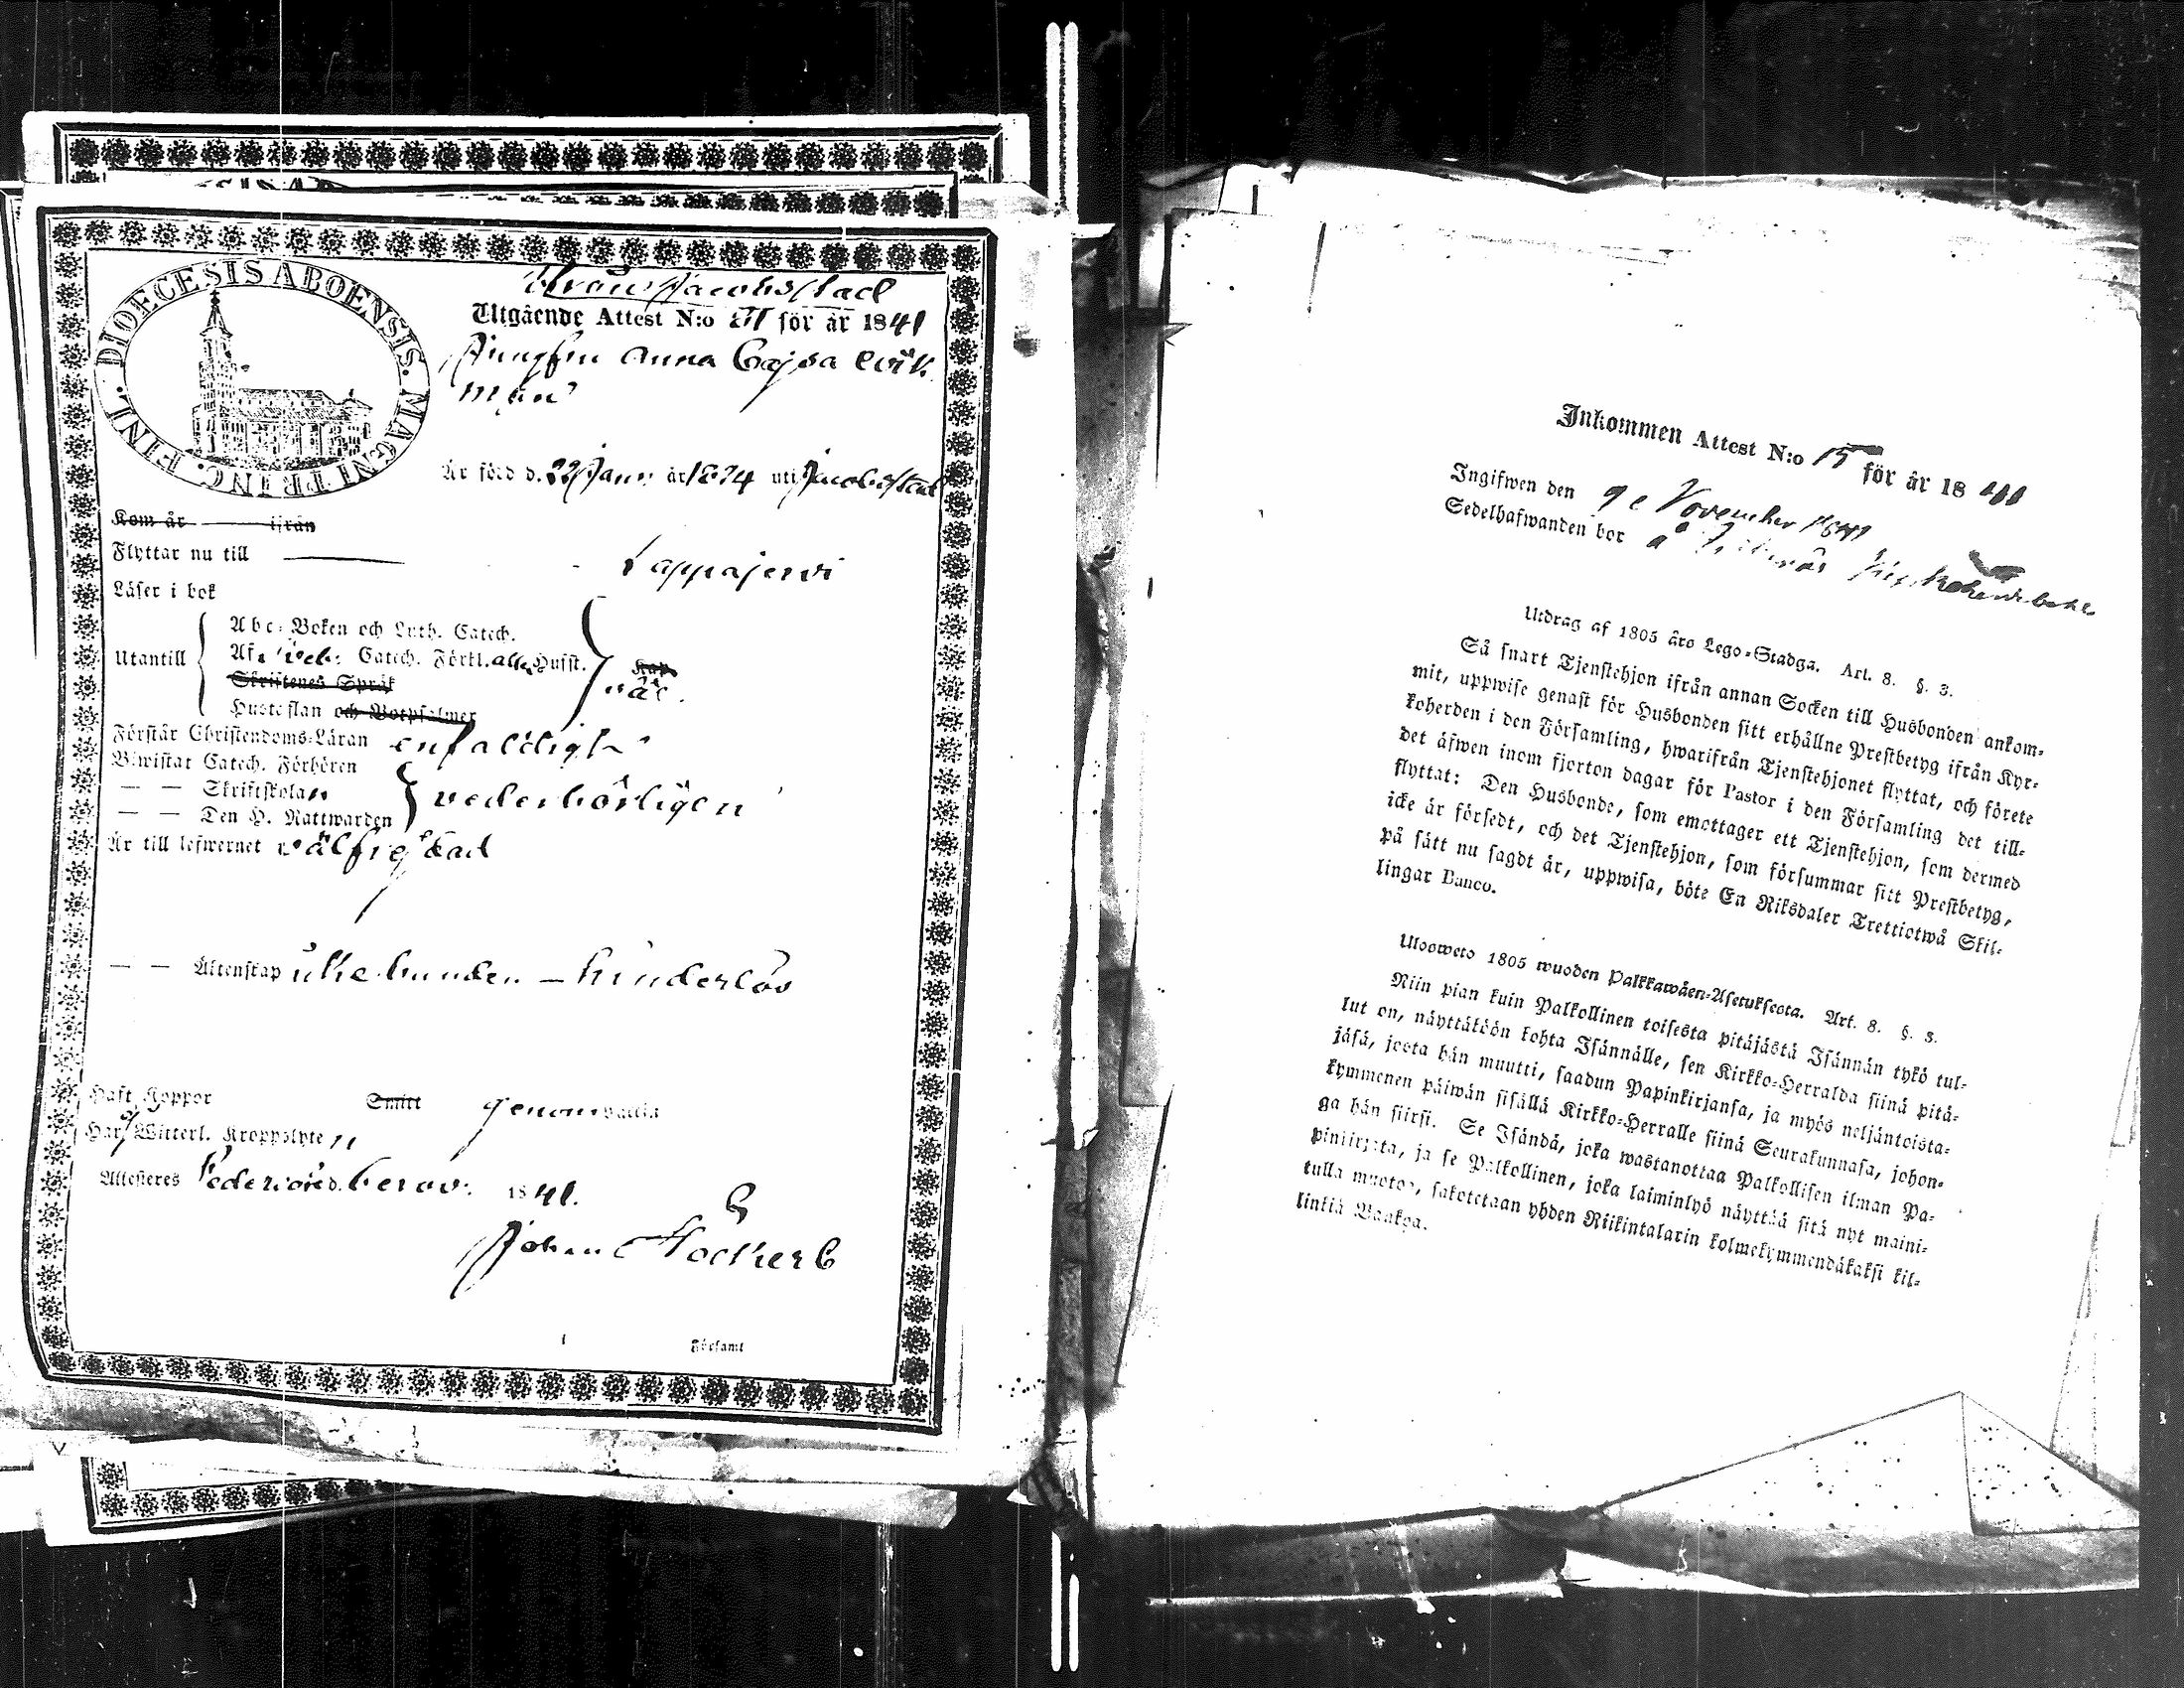 DIOECESIS ABOENSIS. MAGNI PRINC. FINL.
Jacobstad
Utgående Attest N:o för år 1841
Jungfru Anna Cajsa Wik
man
Är född d. 22 Janu: år 1824 uti Jacobstad
Kom år ifrån
Flyttar nu till Lappajervi
Läser i bok
Utantill
Abc-Boken och Luth. Catech.
Af Catech. Förkl. alla Hufst.
väl.
Skriftenes Språk
Hustaflan och Botpsalmer
Förstår Christendoms-Läran enfaldigt
Biwistat Catech. Förhören
— — Skriftskolan
— — Den H. Nattwarden
vederbörligen
Är till lefwernet välfrejdad
— — Äktenskap obunden – hinderlös
Haft Koppor Smitt genom vaccin
Har Witterl. Kroppslyte n
Attesteras Pedersöre d. 1841.
Johan
Församl
Inkommen Attest N:o 15 för år 1841
Ingifwen den 9 November 1841
Sedelhafwanden bor å
Utdrag af 1805 års Lego-Stadga. Art. 8. §. 3.
Så snart Tjenstehjon ifrån annan Socken till Husbonden ankom-
mit, uppwise genast för Husbonden sitt erhållne Prestbetyg ifrån Kyr-
koherden i den Församling, hwarifrån Tjenstehjonet flyttat, och förete
det äfwen inom fjorton dagar för Pastor i den Församling det till-
flyttat: Den Husbonde, som emottager ett Tjenstehjon, som dermed
icke är försedt, och det Tjenstehjon, som försummar sitt Prestbetyg,
på sätt nu sagdt är, uppwisa, böte En Riksdaler Trettiotwå Skil-
lingar Banco.
Ulosweto 1805 wuoden Palkkawäen-Asetuksesta. Art. 8. §. 3.
Niin pian kuin Palkollinen toisesta pitäjästä Isännän tykö tul-
lut on, näyttäköön kohta Isännälle, sen Kirkko-Herralda siinä pitä-
jäsä, josta hän muutti, saadun Papinkirjansa, ja myös neljäntoista-
kymmenen päiwän sisällä Kirkko-Herralle siinä Seurakunnasa, johon-
ga hän siirsi. Se Isändä, joka wastanottaa Palkollisen ilman Pa-
pinkirjata, ja se Palkollinen, joka laiminlyö näyttää sitä nyt maini-
tulla muoto, sakotetaan yhden Riikintalarin kolmekymmendäkaksi kil-
linkiä Bankoa.